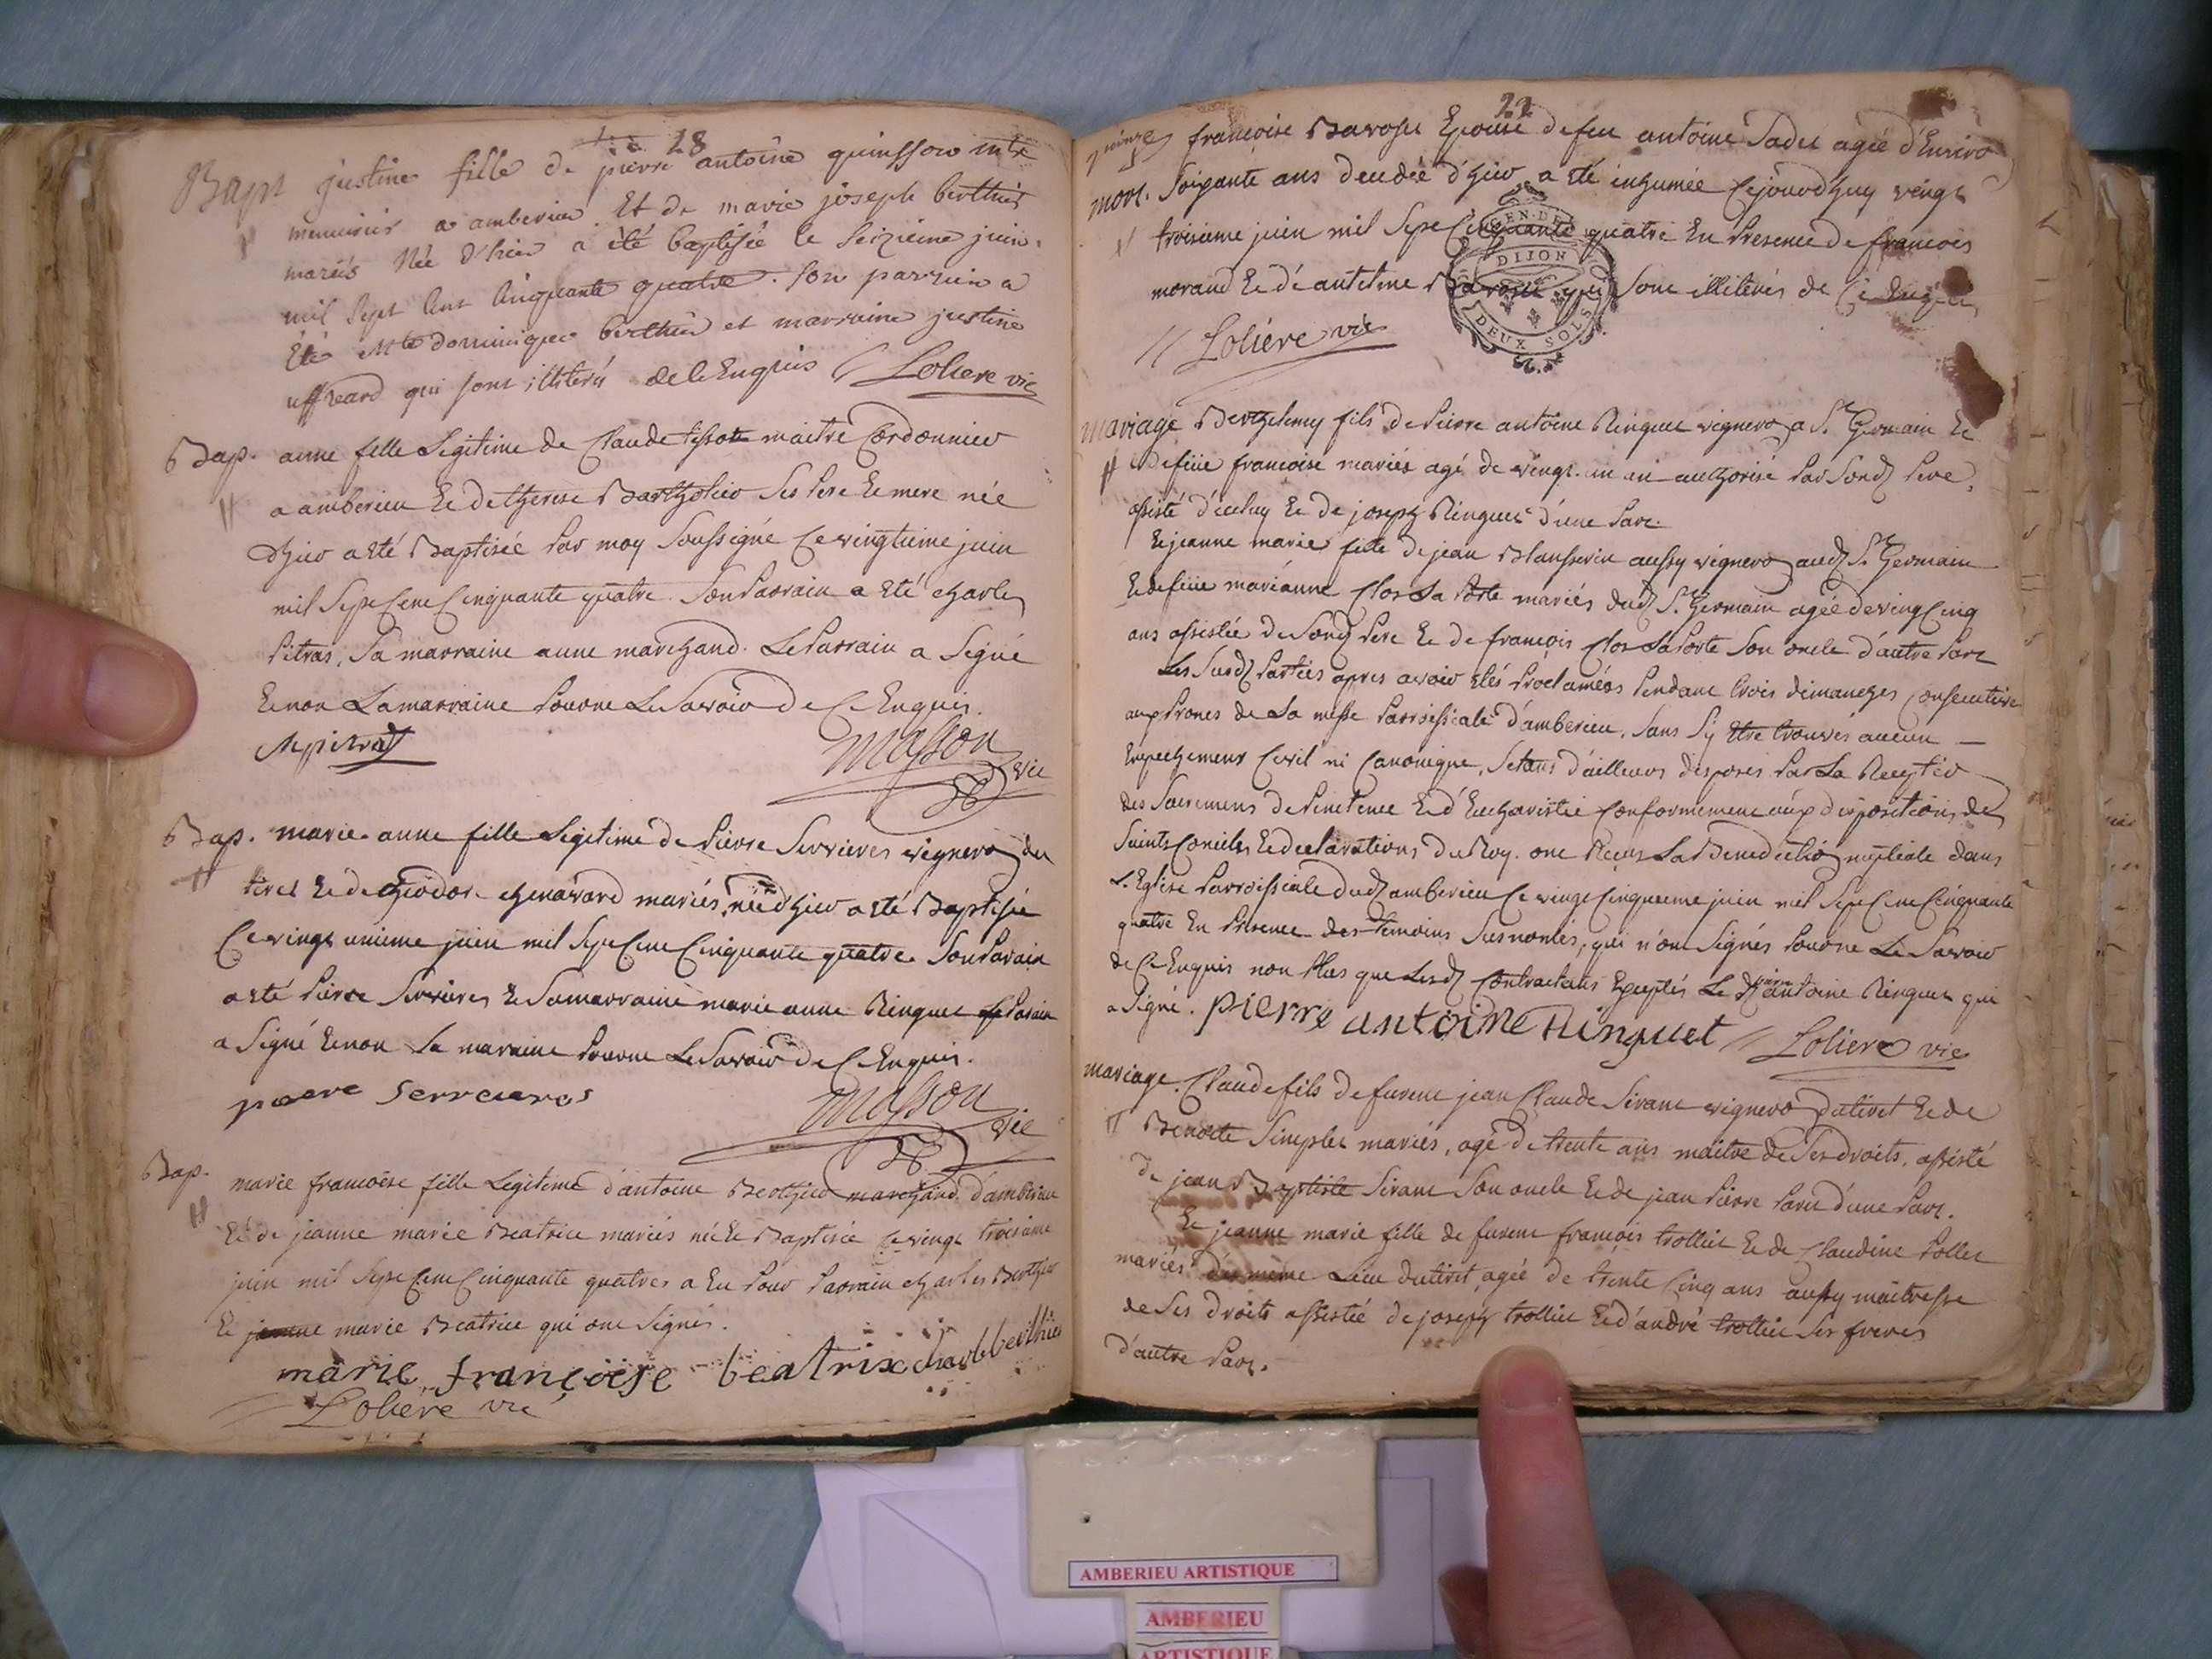 28
Bapt justine fille de pierre antoine quinsson mtre
menuisier a amberieu Et de marie joseph berthier
mariés Née d'hier a été baptisée le seizieme juin
mil sept cent cinquante quatre. son parrain a
été Mtre dominique berthier et marraine justine
uffreard qui sont illiterés de ce Enquis Loliere vic
Bap. anne fille Legitime de Claude tissot maitre Cordonnier
a amberieu Et de therese Bartholier Ses Pere Et mere née
d'hier a eté Baptisée Par moy Soussigné Ce vingtieme juin
mil Sept Cent Cinquante quatre. Son Parrain a eté charles
Pitras, Sa marraine anne marchand. Le Parrain a Signé
Et non La marraine Pour ne Le Savoir de C Enquis.
Masson vic
Bap. marie anne fille Legitime de Pierre Serrieres vigneron du
tiret Et de theodore chenavard mariés, née d'hier a eté Baptisée
Ce vingt unieme juin mil Sept Cent Cinquante quatre. Son Parain
a eté Pierre Serrieres Et Sa marraine marie anne Ringuet Le Parain
a Signé Et non La maraine Pour ne Le Savoir de C Enquis.
Masson vic
Bap. marie francoise fille Legitime d'antoine Berthier marchand d'amberieu
Et de jeanne marie Beatrice mariés née Et Baptisée Ce vingt troisieme
juin mil Sept Cent Cinquante quatre a Eu Pour Parrain charles Berthier
Et jeanne marie Beatrice qui ont Signés.
marie françoise beatrix charle berthier
Loliere vic
22
francoise Barosu Epouse de feu antoine Sadet agée d'Environ
mort. Soixante ans decedée d'hier a eté inhumée Cejourd'huy vingt
troisieme juin mil Sept Cinquante quatre En Presence de francois
morand Et de antelme qui Sont illiterés de Ce Enquis
Loliere vic
GEN. DE DIJON
DEUX SOLS
mariage Berthelemy fils de Pierre antoine Ringuet vigneron a St. Germain Et
de feüe francoise mariés agé de vingt un an authorisé Par Sond Pere,
assisté d'iceluy Et de joseph Ringuet d'une Part.
Et jeanne marie fille de jean Blanserin aussy vigneron aud St Germain
Et de feüe marianne Clos La Porte mariés dud St. Germain agée de vingt Cinq
ans assistée de Sond Pere Et de françois Clos La Porte Son oncle d'autre Part
Les Susd Parties apres avoir etés Proclamées Pendant trois dimanches consecutive
aux Prones de La messe Parroissiale d'amberieu, Sans S'y Etre trouvés aucun
Empechement Civil ni Canonique, S'etans d'ailleurs disposés Par La Reception
des Sacremens de Penitence Et d'Eucharistie Conformement aux dispositions des
Saints Conciles Et declarations du Roy. ont Recus La Benediction nuptiale dans
L'Eglise Parroissiale dud amberieu Ce vingt Cinquieme juin mil Sept Cent Cinquante
quatre En Presence des temoins Susnomés, qui n'ont Signés Pour ne Le Savoir
de Ce Enquis non Plus que Lesd Contractans Exeptés Le d pierre antoine Ringuet qui
a Signé. pierre antoine Ringuet Loliere vic
mariage. Claude fils de furent jean Claude Sirant vigneron du tiret Et de
Benoite Simplet mariés, agé de trente ans maitre de Ses droits, assisté
de jean Baptiste Sirant Son oncle Et de jean Pierre d'une Part.
Et jeanne marie fille de furent francois trollier Et de Claudine Pollet
mariés du même Lieu du tiret agée de trente Cinq ans aussy maitresse
de Ses droits assistée de joseph trollier Et d'andré trollier Ses freres
d'autre Part.
AMBERIEU ARTISTIQUE
AMBERIEU
ARTISTIQUE